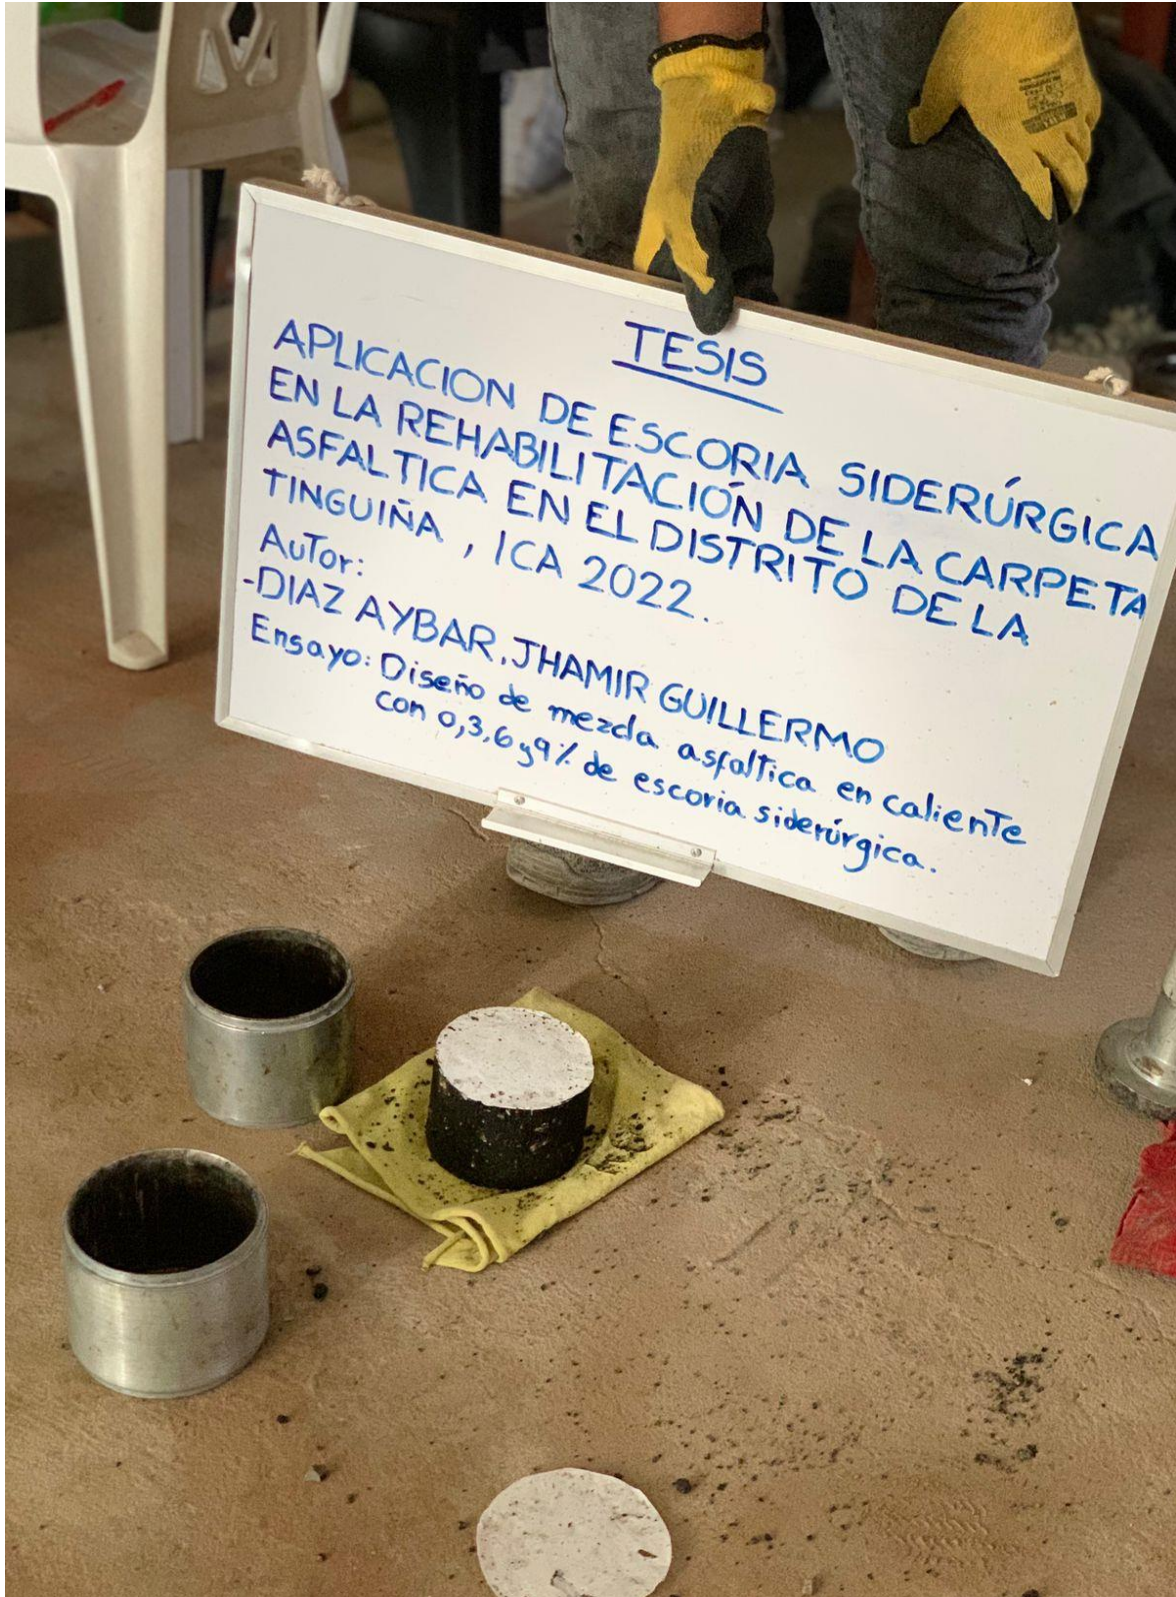 TESIS
APLICACION DE ESCORIA SIDERÚRGICA
EN LA REHABILITACIÓN DE LA CARPETA
ASFALTICA EN EL DISTRITO DE LA
TINGUIÑA, ICA 2022.
AuTor:
-DIAZ AYBAR, JHAMIR GUILLERMO
Ensayo: Diseño de mezcla asfaltica en calienTe
con 0,3,6 y 9% de escoria siderúrgica.